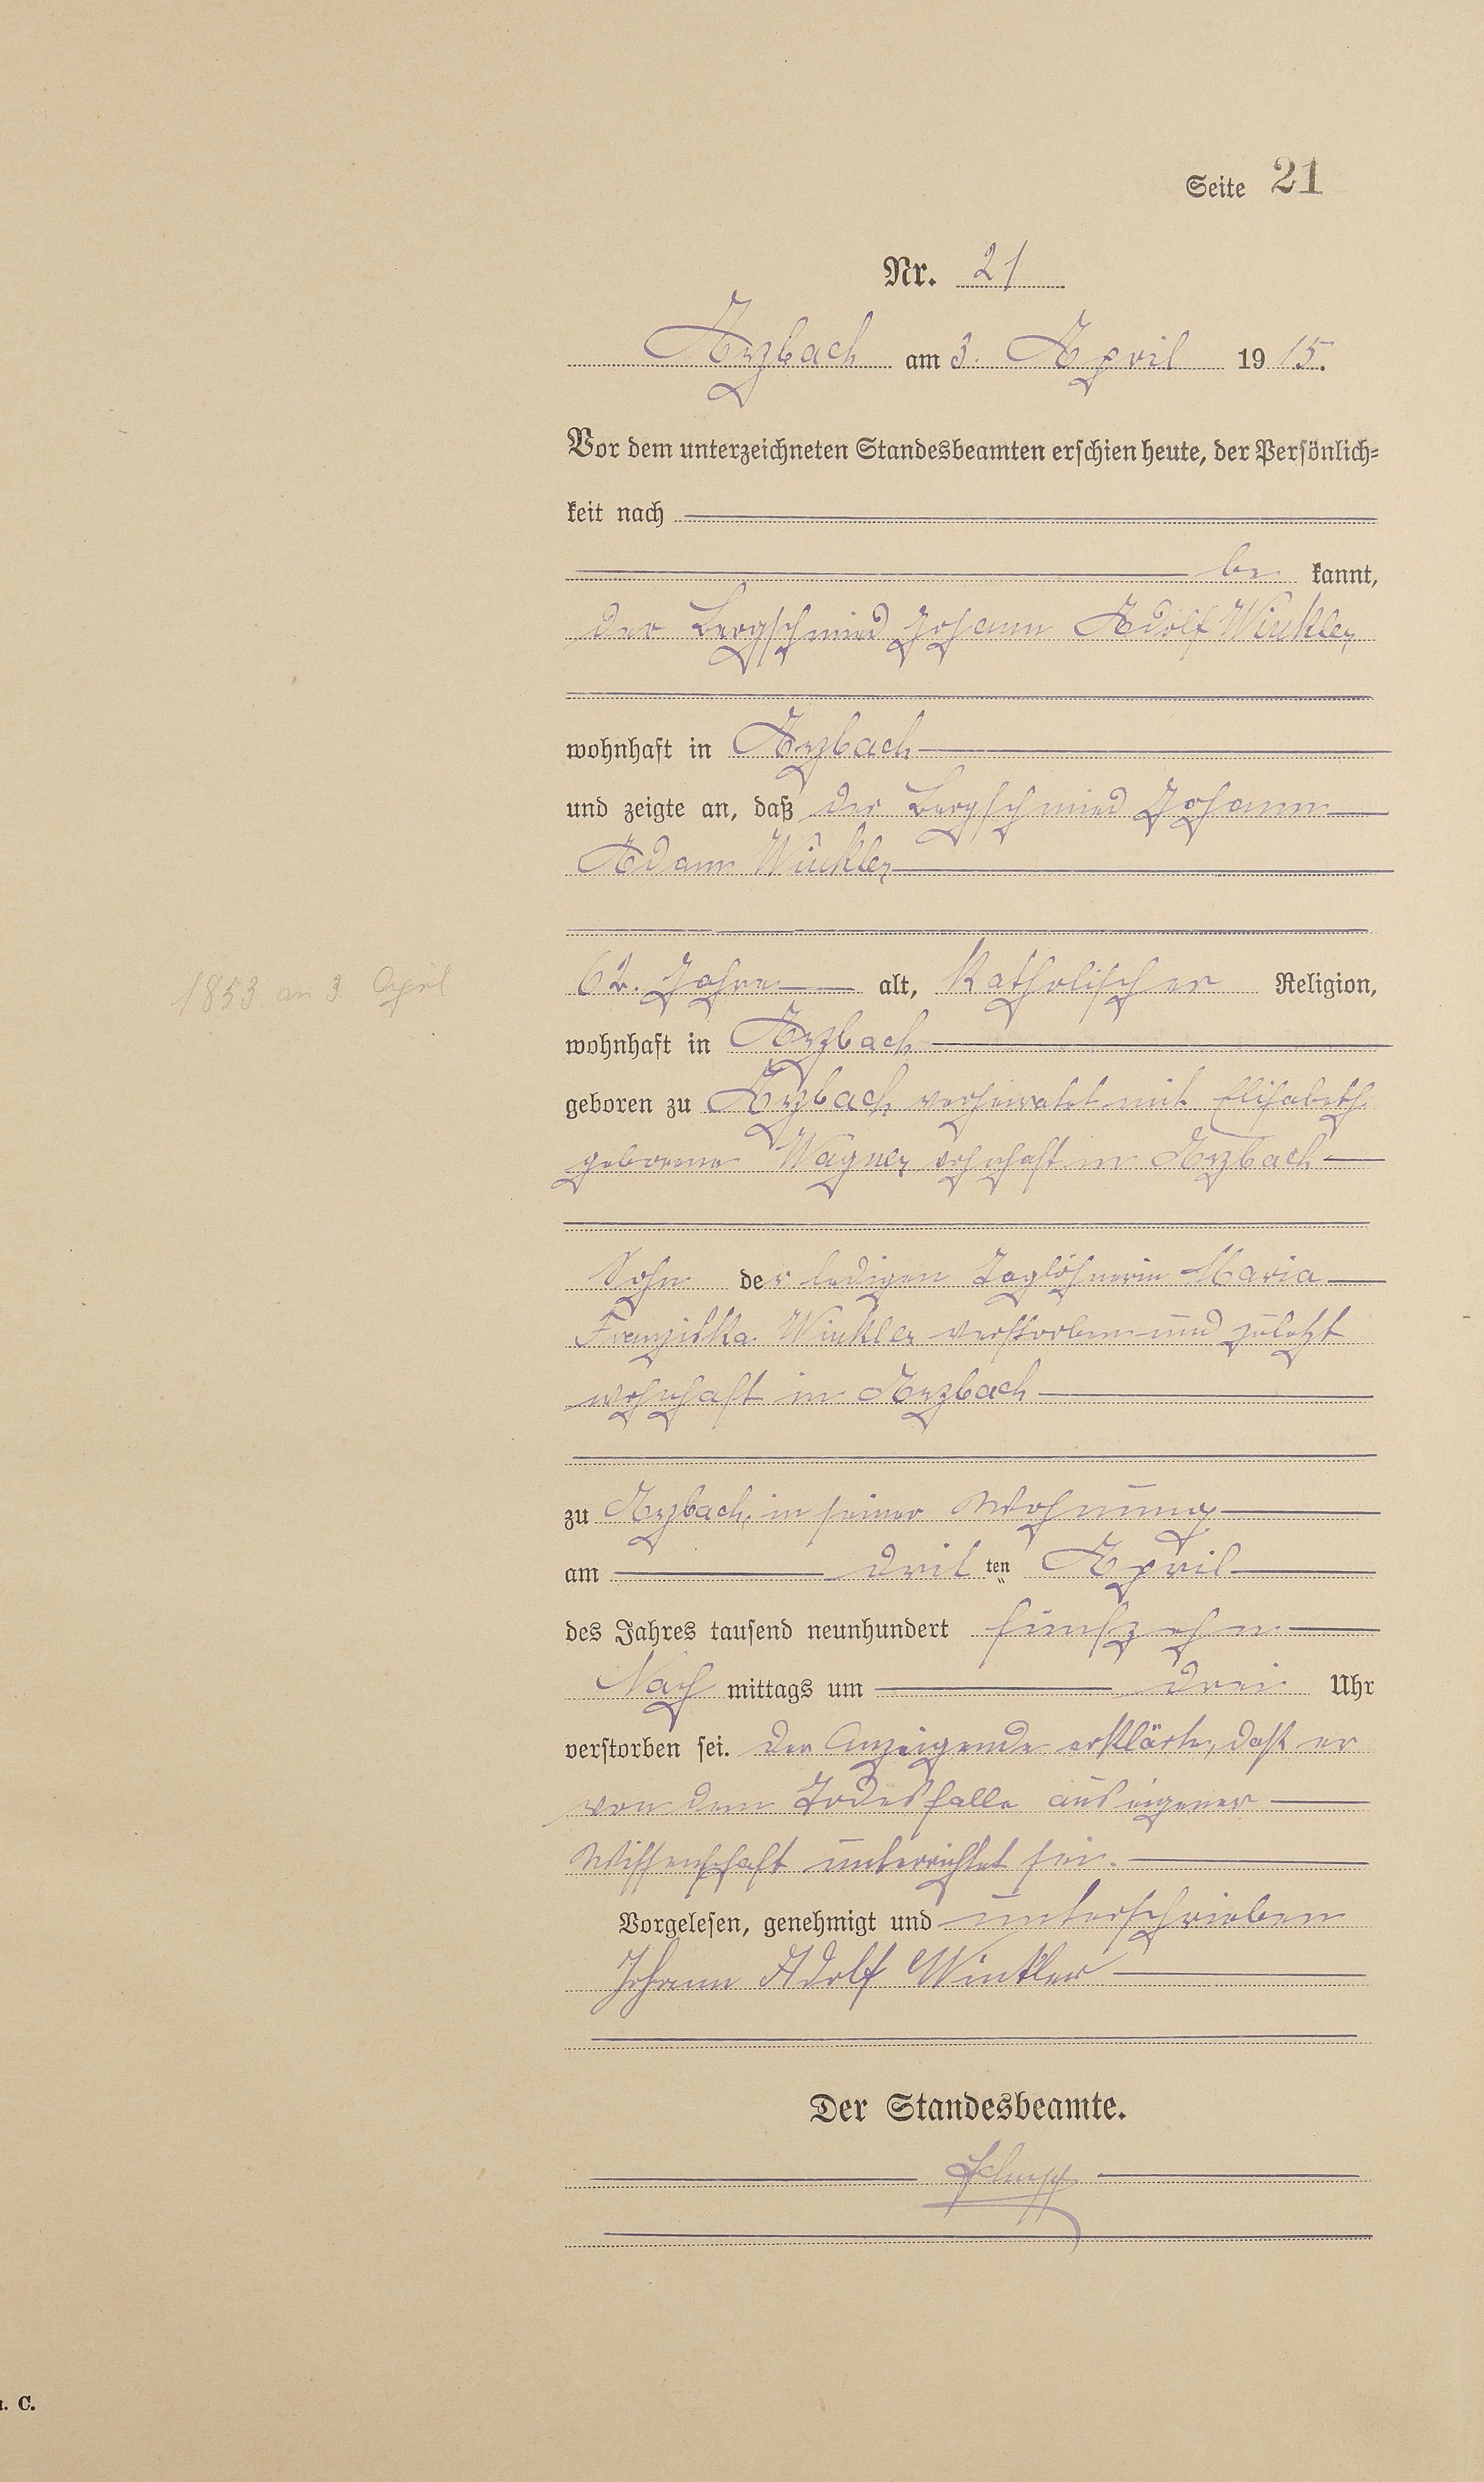 Seite 21
Nr. 21
Arzbach am 3. April 1915.
Vor dem unterzeichneten Standesbeamten erschien heute, der Persönlich-
keit nach
be kannt,
der Bergschmied Johann Adolf Winkler
wohnhaft in Arzbach
und zeigte an, daß der Bergschmied Johann
Adam Winkler
1853 am 3. April
62. Jahre alt, Katholischer Religion,
wohnhaft in Arzbach
geboren zu Arzbach verheiratet mit Elisabeth
geborene Wagner wohnhaft in Arzbach
Sohn der ledigen Taglöhnerin Maria
Franziska Winkler verstorben und zuletzt
wohnhaft in Arzbach
zu Arzbach, in seiner Wohnung
am drit ten April
des Jahres tausend neunhundert fünfzehn
Nach mittags um drei Uhr
verstorben sei. Der Anzeigende erklärte, daß er
von dem Todesfalle aus eigener
Wissenschaft unterrichtet sei.
Vorgelesen, genehmigt und unterschrieben
Johann Adolf Winkler
Der Standesbeamte.
C.